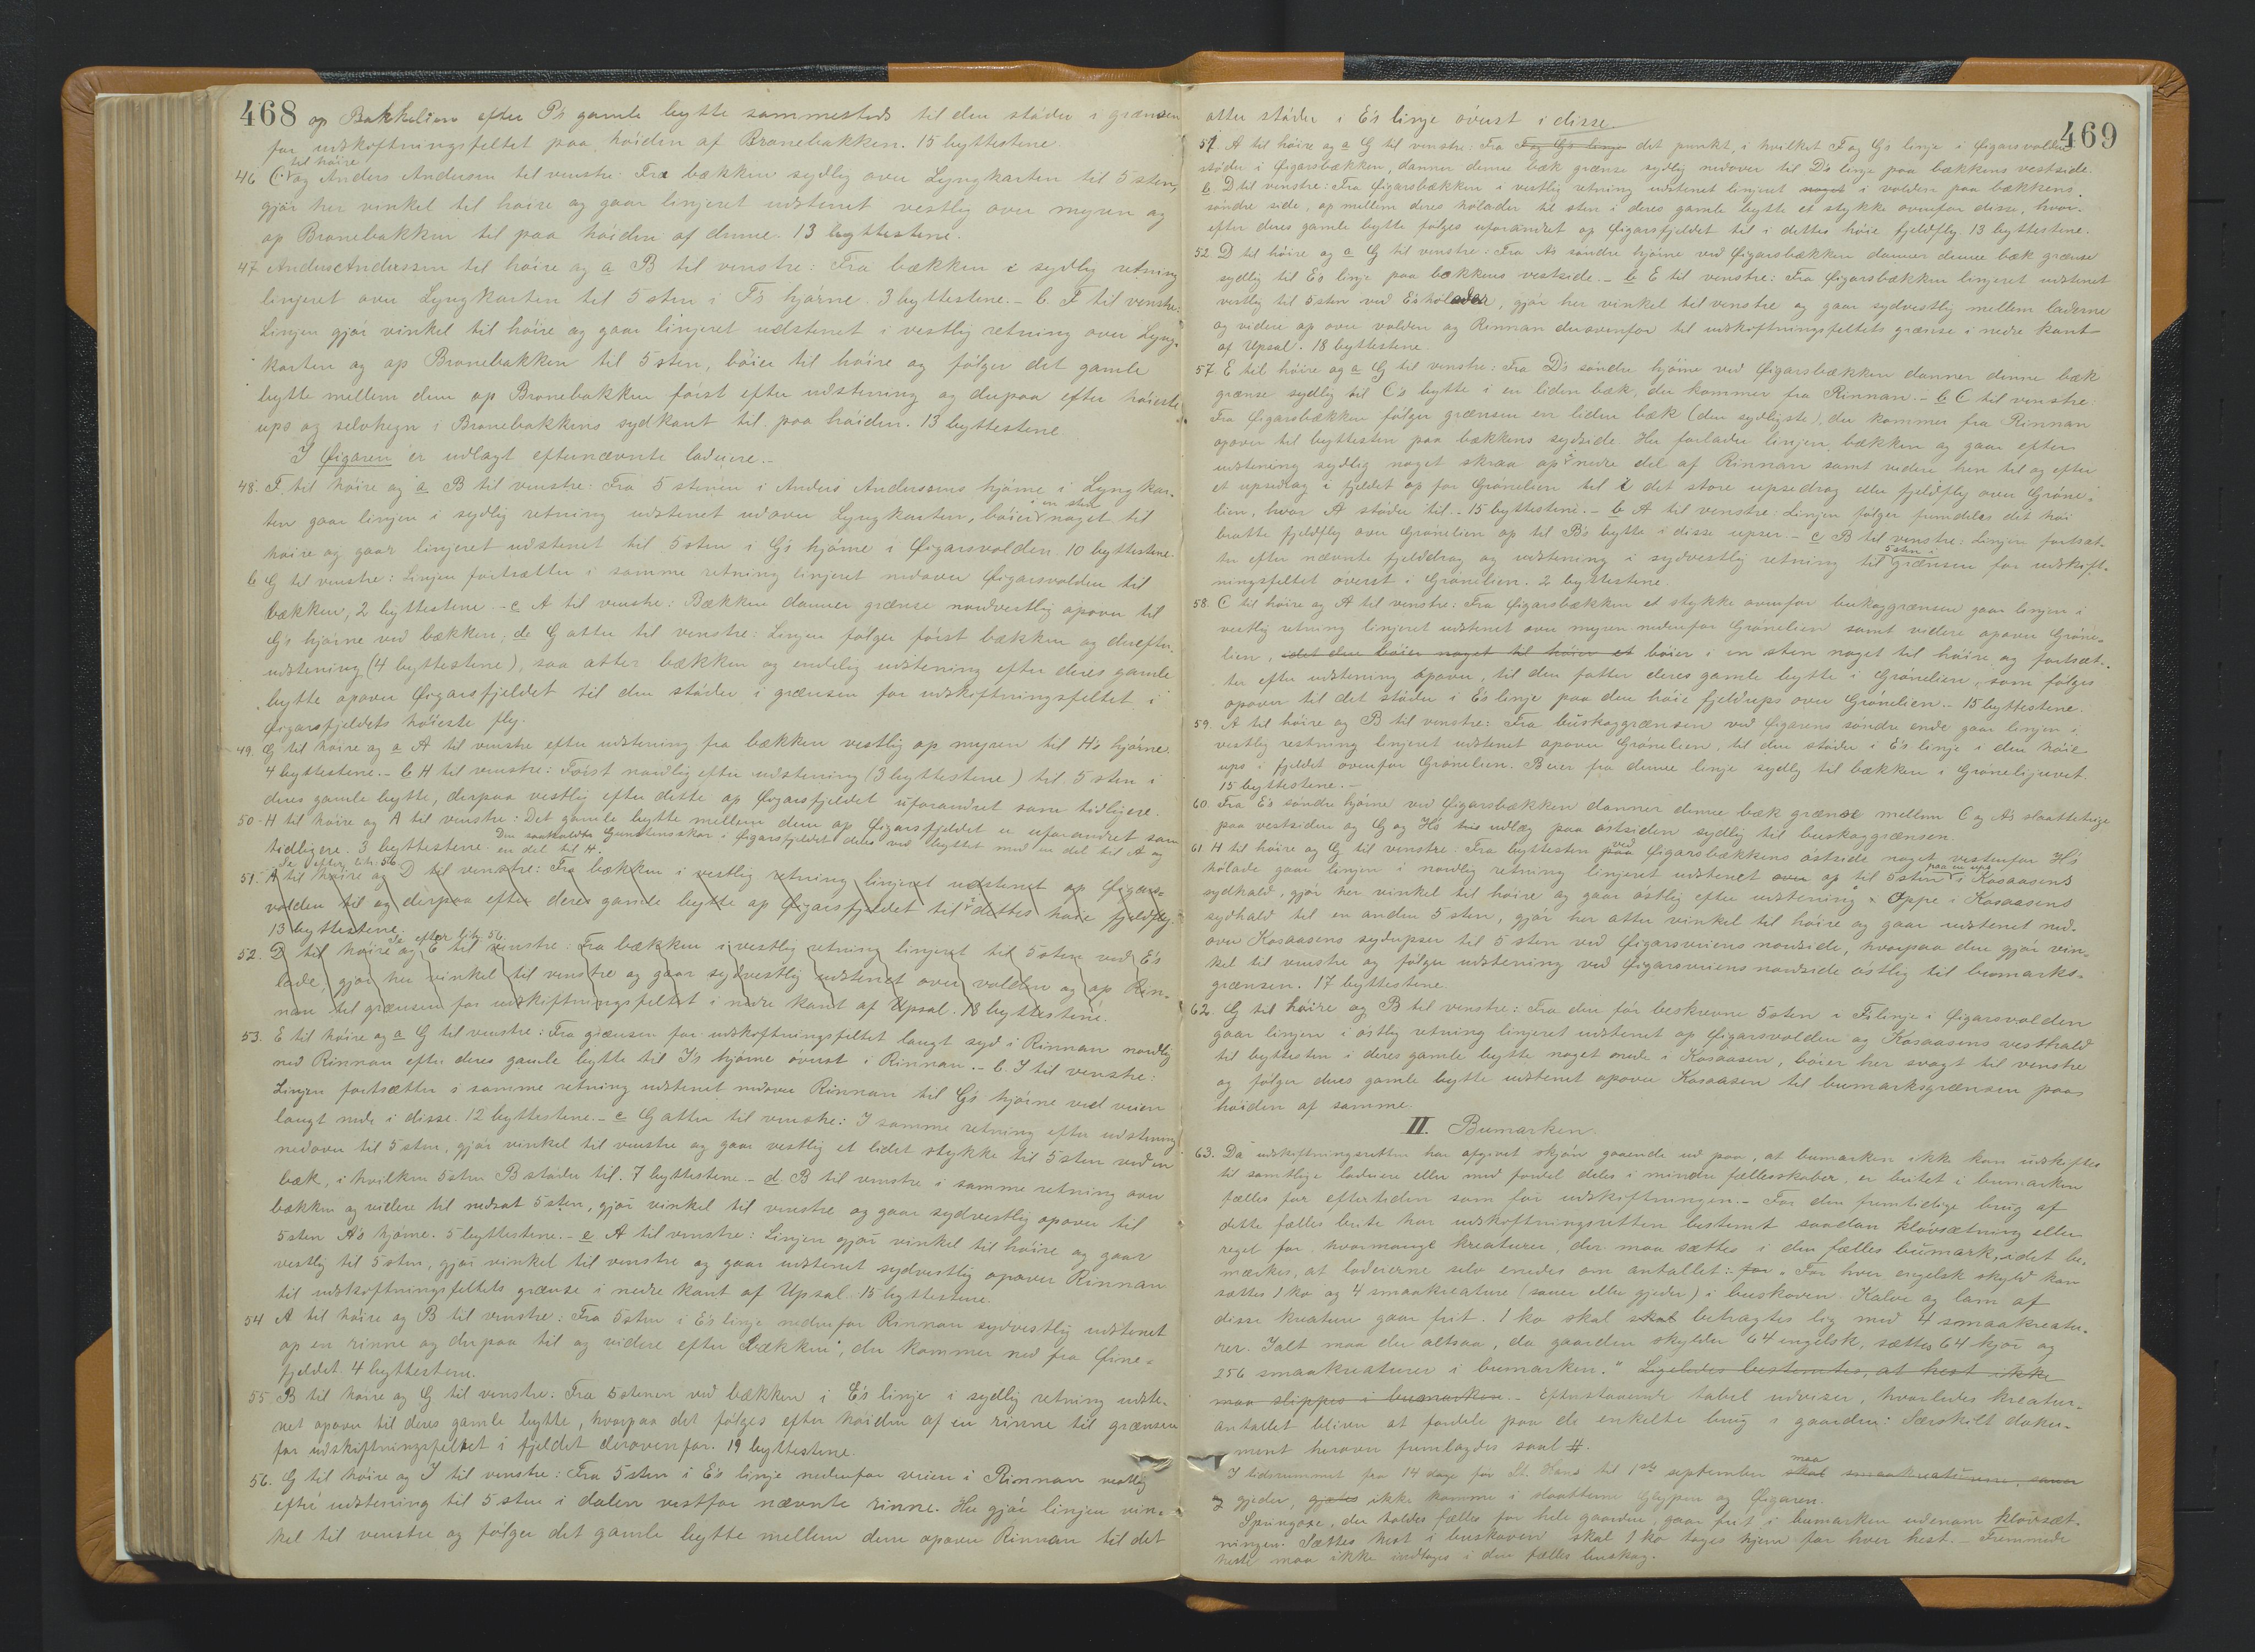 468
op Bakkelien efter P's gamle bytte sammesteds til den støder i grænsen
for udskiftningsfeltet paa høiden af Bronebakken. 15 byttestene.
46 C til høire og Anders Andersen til venstre: Fra bækken sydlig over Lyngkarten til 5 sten,
gjør her vinkel til høire og gaar linjeret udstenet vestlig over myren og
op Bronebakken til paa høiden af denne. 13 byttestene.
47 Anders Anderssen til høire og a B til venstre: Fra bækken i sydlig retning
linjeret over Lyngkarten til 5 sten i F's hjørne. 3 byttestene. - b. F til venstre:
Linjen gjør vinkel til høire og gaar linjeret udstenet i vestlig retning over Lyng-
karten og op Bronebakken til 5 sten, bøier til høire og følger det gamle
bytte mellem dem op Bronebakken først efter udstening og derpaa efter høieste
ups og selvhegn i Bronebakkens sydkant til paa høiden. 13 byttestene.
I Øigaren er udlagt efternævnte lodeiere. -
48. F. til høire og a B til venstre: Fra 5 stenen i Anders Anderssens hjørne i Lyngkar-
ten gaar linjen i sydlig retning udstenet udover Lyngkarten, bøier i en sten noget til
høire og gaar linjeret udstenet til 5 sten i G's hjørne i Øigarsvolden. 10 byttestene.
b G til venstre: Linjen fortsætter i samme retning linjeret nedover Øigarsvolden til
bækken, 2 byttestene - c A til venstre: Bækken danner grænse nordvestlig opover til
G's hjørne ved bækken; de G atter til venstre: Linjen følger først bækken og derefter
udstening (4 byttestene), saa atter bækken og endelig udstening efter deres gamle
bytte opover Øigarsfjeldet til den støder i grænsen for udskiftningsfeltet i
Øigarsfjeldets høieste fly.
49. G til høire og a A til venstre efter udstening fra bækken vestlig op myren til H's hjørne.
4 byttestene. - b H til venstre: Først nordlig efter udstening (3 byttestene) til 5 sten i
deres gamle bytte, derpaa vestlig efter dette op Øigarsfjeldet uforandret som tidligere.
50 - H til høire og A til venstre: Det gamle bytte mellem dem op Øigarsfjeldet er uforandret som
tidligere. 3 byttestene. Den saakaldte Gunstensskor i Øigarsfjeldet deles ved byttet med en del til A og
en del til H.
Se efter litr. 56
51. A til høire og D til venstre: Fra bækken i vestlig retning linjeret udstenet op Øigars-
volden til og derpaa efter deres gamle bytte op Øigarsfjeldet til i dettes høie fjeldfly.
13 byttestene.
Se efter litr. 56.
52. D til høire og E til venstre: Fra bækken i vestlig retning linjeret til 5 sten ved E's
lade, gjør her vinkel til venstre og gaar sydvestlig udstenet over volden og op Rin-
nan til grænsen for udskiftningsfeltet i nedre kant af Upsal. 18 byttestene.
53. E til høire og a G til venstre: Fra grænsen for udskiftningsfeltet langt syd i Rinnan nordlig
ned Rinnan efter deres gamle bytte til I's hjørne øverst i Rinnan. - b. I til venstre:
Linjen fortsætter i samme retning udstenet nedover Rinnan til G's hjørne ved veien
langt nede i disse. 12 byttestene. - c G atter til venstre: I samme retning efter udstening
nedover til 5 sten, gjør vinkel til venstre og gaar vestlig et lidet stykke til 5 sten ved en
bæk, i hvilken 5 sten B støder til. 7 byttestene - d. B til venstre i samme retning over
bækken og videre til nedsat 5 sten, gjør vinkel til venstre og gaar sydvestlig opover til
5 sten A's hjørne. 5 byttestene. - e A til venstre: Linjen gjør vinkel til høire og gaar
vestlig til 5 sten, gjør vinkel til venstre og gaar udstenet sydvestlig opover Rinnan
til udskiftningsfeltets grænse i nedre kant af Upsal. 15 byttestene.
54 A til høire og B til venstre: Fra 5 sten i E's linje nedenfor Rinnan sydvestlig udstenet
op en rinne og derpaa til og videre efter "bækken", der kommer ned fra Øvne-
fjeldet. 4 byttestene.
55. B til høire og G til venstre: Fra 5 stenen ved bækken i E's linje i sydlig retning udste-
net opover til deres gamle bytte, hvorpaa det følges efter høiden af en rinne til grænsen
for udskiftningsfeltet i fjeldet derovenfor. 19 byttestene.
56. G til høire og I til venstre: Fra 5 sten i E's linje nedenfor veien i Rinnan vestlig
efter udstening til 5 sten i dalen vestfor nævnte rinne. Her gjør linjen vin-
kel til venstre og følger det gamle bytte mellem dem opover Rinnan til det
469
atter støder i E's linje øverst i disse.
51. A til høire og a G til venstre: Fra F og G's linje det punkt, i hvilket F og G's linje i Øigarsvolden
støder i Øigarsbækken, danner denne bæk grænse sydlig nedover til D's linje paa bækkens vestside.
b D til venstre: Fra Øigarsbækken i vestlig retning udstenet linjeret noget i volden paa bækkens
søndre side, op mellem deres hølader til sten i deres gamle bytte et stykke ovenfor disse, hvor-
efter deres gamle bytte følges uforandret op Øigarsfjeldet til i dettes høie fjeldfly. 13 byttestene.
52 D til høire og a G til venstre: Fra A's søndre hjørne ved Øigarsbækken danner denne bæk grænse
sydlig til E's linje paa bækkens vestside. - b E til venstre: Fra Øigarsbækken linjeret udstenet
vestlig til 5 sten ved E's hølader, gjør her vinkel til venstre og gaar sydvestlig mellem laderne
og videre op over volden og Rinnan derovenfor til udskiftningsfeltets grænse i nedre kant
af Upsal. 18 byttestene.
57. E til høire og a G til venstre: Fra D's søndre hjørne ved Øigarsbækken danner denne bæk
grænse sydlig til C's bytte i en liden bæk, der kommer fra Rinnan. - b C til venstre:
Fra Øigarsbækken følger grænsen en liden bæk (den sydligste), der kommer fra Rinnan
opover til byttesten paa bækkens sydside. Her forlader linjen bækken og gaar efter
udstening sydlig noget skraa op i nedre del af Rinnan samt videre hen til og efter
et upsedrag i fjeldet op for Grønelien til i det store upsedrag eller fjeldfly over Grøne-
lien, hvor A støder til. - 15 byttestene. - b A til venstre: Linjen følger fremdeles det høi
bratte fjeldfly over Grønelien op til B's bytte i disse upser - c B til venstre: Linjen fortsæt-
ter efter nævnte fjelddrag og udstening i sydvestlig retning til 5 sten i grænsen for udskift-
ningsfeltet øverst i Grønelien. 2 byttestene.
58. C til høire og A til venstre: Fra Øigarsbækken et stykke ovenfor buskoggrænsen gaar linjen i
vestlig retning linjeret udstenet over myren nedenfor Grønelien samt videre opover Grøne-
lien, idet den bøier noget til høire et bøier i en sten noget til høire og fortsæt-
ter efter udstening opover, til den fatter deres gamle bytte i Grønelien, som følges
opover til det støder i E's linje paa den høie fjeldups over Grønelien. - 15 byttestene.
59. A til høire og B til venstre: Fra buskoggrænsen ved Øigarens søndre ende gaar linjen i
vestlig restning linjeret udstenet opover Grønelien, til den støder i E's linje i den høie
ups i fjeldet ovenfor Grønelien. B eier fra denne linje sydlig til bækken i Grønelijuvet.
15 byttestene. -
60. Fra E's søndre hjørne ved Øigarsbækken danner denne bæk grænse mellem C og A's slaatteteige
paa vestsiden og G og H's udlæg paa østsiden sydlig til buskoggrænsen.
61 H til høire og G til venstre: Fra byttesten paa ved Øigarsbækkens østside noget vestenfor H's
hølade gaar linjen i nordlig retning linjeret udstenet over op til 5 sten paa en ups i Kosaasens
sydhald, gjør her vinkel til høire og gaar østlig efter udstening i Øppe i Kosaasens
sydhald til en anden 5 sten, gjør her atter vinkel til høire og gaar udstenet ned-
over Kosaasens sydupser til 5 sten ved Øigarsveiens nordside, hvorpaa den gjør vin-
kel til venstre og følger udstening ved Øigarsveiens nordside østlig til bumarks-
grænsen. 17 byttestene.
62. G til høire og B til venstre: Fra den før beskrevne 5 sten i F's linje i Øigarsvolden
gaar linjen i østlig retning linjeret udstenet op Øigarsvolden og Kosaasens vesthald
til byttesten i deres gamle bytte noget nede i Kosaasen, bøier her svagt til venstre
og følger deres gamle bytte udstenet opover Kosaasen til bumarksgrænsen paa
høiden af samme.
II. Bumarken.
63. Da udskiftningsretten har afgivet skjøn gaaende ud paa, at bumarken ikke kan udskiftes
til samtlige lodeiere eller med fordel deles i mindre fællesskaber, er beitet i bumarken
fælles for eftertiden som før udskiftningen. - For den fremtidige brug af
dette fælles beite har udskiftningsretten bestemt saadan kløvsætning eller
regel for, hvormange kreaturer, der maa sættes i den fælles bumark, idet be-
mærkes, at lodeierne selv enedes om antallet: for "For hver engelsk skyld kan
sættes 1 ko og 4 smaakreature (sauer eller gjeder) i buskoven. Kalve og lam af
disse kreature gaar frit. 1 ko skal skal betragtes lig med 4 smaakreatu-
rer. Ialt maa der altsaa, da gaarden skylder 64 engelsk, sættes 64 kjør og
256 smaakreaturer i bumarken." Ligeledes bestemtes, at hest ikke
maa slippes i bumarken. - Efterstaaende tabel udviser, hvorledes kreatur-
antallet bliver at fordele paa de enkelte brug i gaarden: Særskilt doku-
ment herover fremlagdes saal #.
I tidsrummet fra 14 dage før St. Hans til 1ste september skal maa smaakreaturene, sauer
og gjeder, gjætes ikke komme i slaatterne Gleypen og Øigaren.
Springoxe, der holdes fælles for hele gaarden, gaar frit i bumarken udenom kløvsæt-
ningen. Sættes hest i buskoven skal 1 ko tages hjem for hver hest. - Fremmede
heste maa ikke indtages i den fælles buskog.